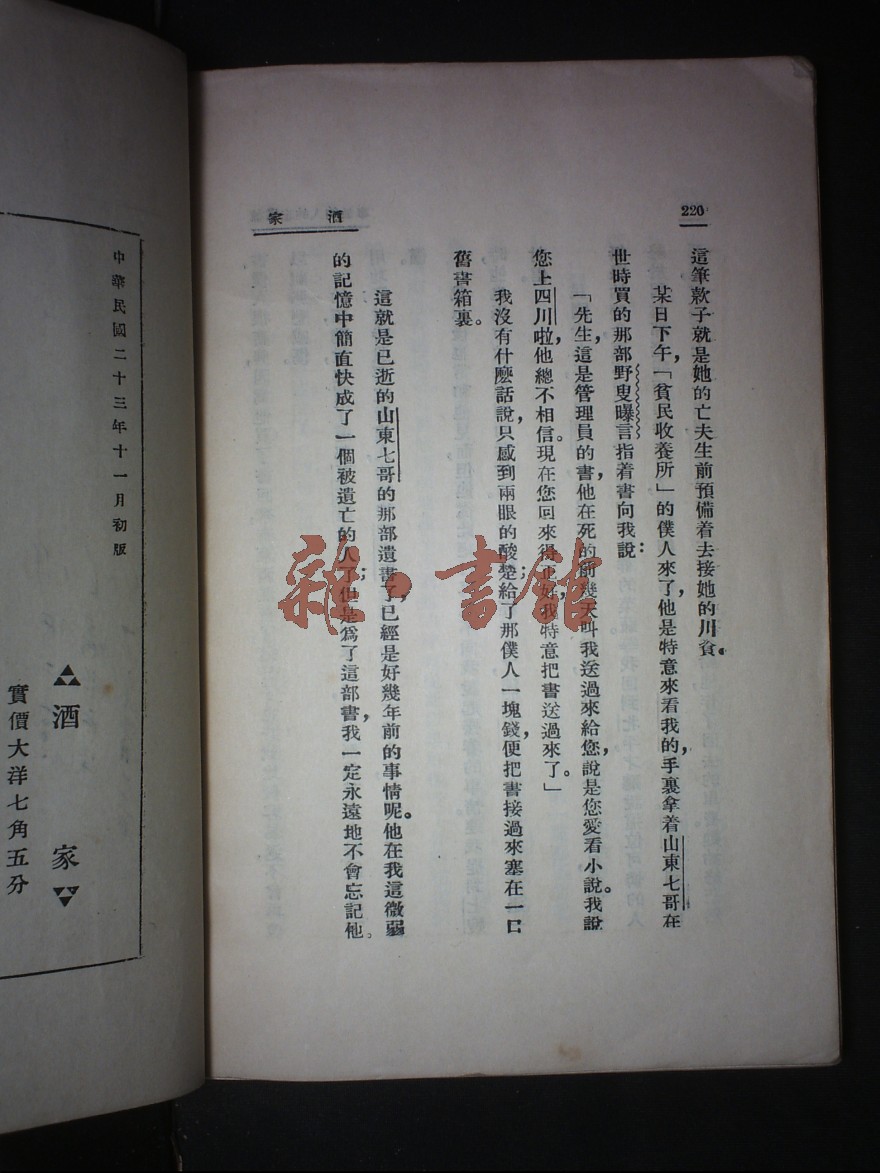 220
酒家
這筆款子就是她的亡夫生前預備着去接她的川貧。
某日下午，「貧民收養所」的僕人來了，他是特意來看我的，手裏拿着山東七哥在
世時買的那部野叟曝言指着書向我說：
「先生，這是管理員的書，他在死的前幾天叫我送過來給您，說是您愛看小說。我說
您上四川啦，他總不相信。現在您回來得正好，我特意把書送過來了。」
我沒有什麽話說，只感到兩眼的酸楚；給了那僕人一塊錢，便把書接過來塞在一口
舊書箱裏。
這就是已逝的山東七哥的那部遺書了，已經是好幾年前的事情呢。他在我這微弱
的記憶中簡直快成了一個被遺亡的人了；但是爲了這部書，我一定永遠地不會忘記他。
中華民國二十三年十一月初版
酒家
實價大洋七角五分
雜·書館